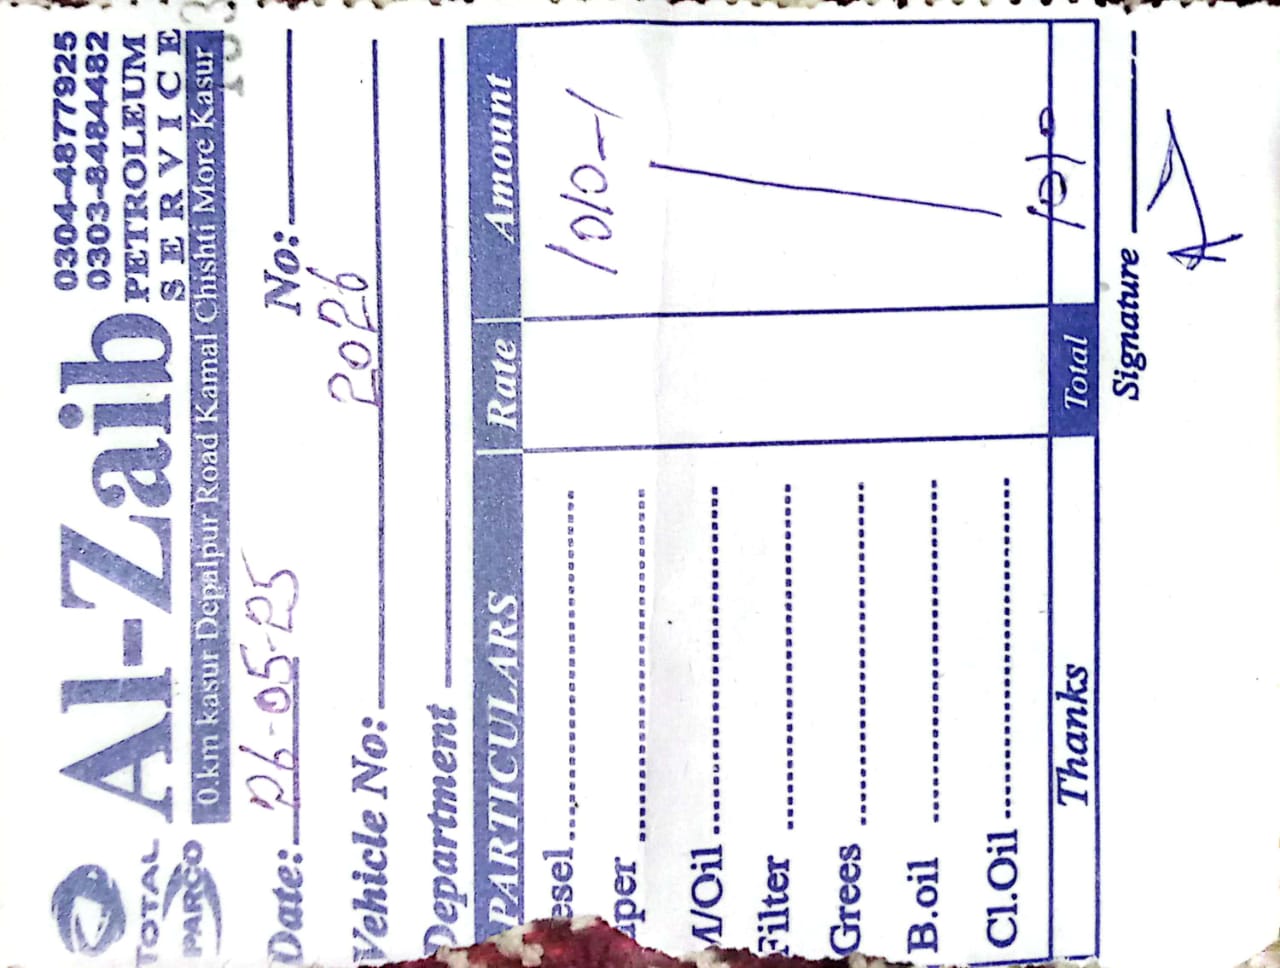 TOTAL
PARCO
Al-Zaib
0304-4877925
0303-8484482
PETROLEUM
SERVICE
0.km kasur Depalpur Road Kamal Chishti More Kasur
Date: 26-05-25 No:
Vehicle No: 2026
Department
PARTICULARS Rate Amount
esel 1010-/
uper
M/Oil
Filter
Grees
B.oil
Cl.Oil
Thanks Total 1010
Signature